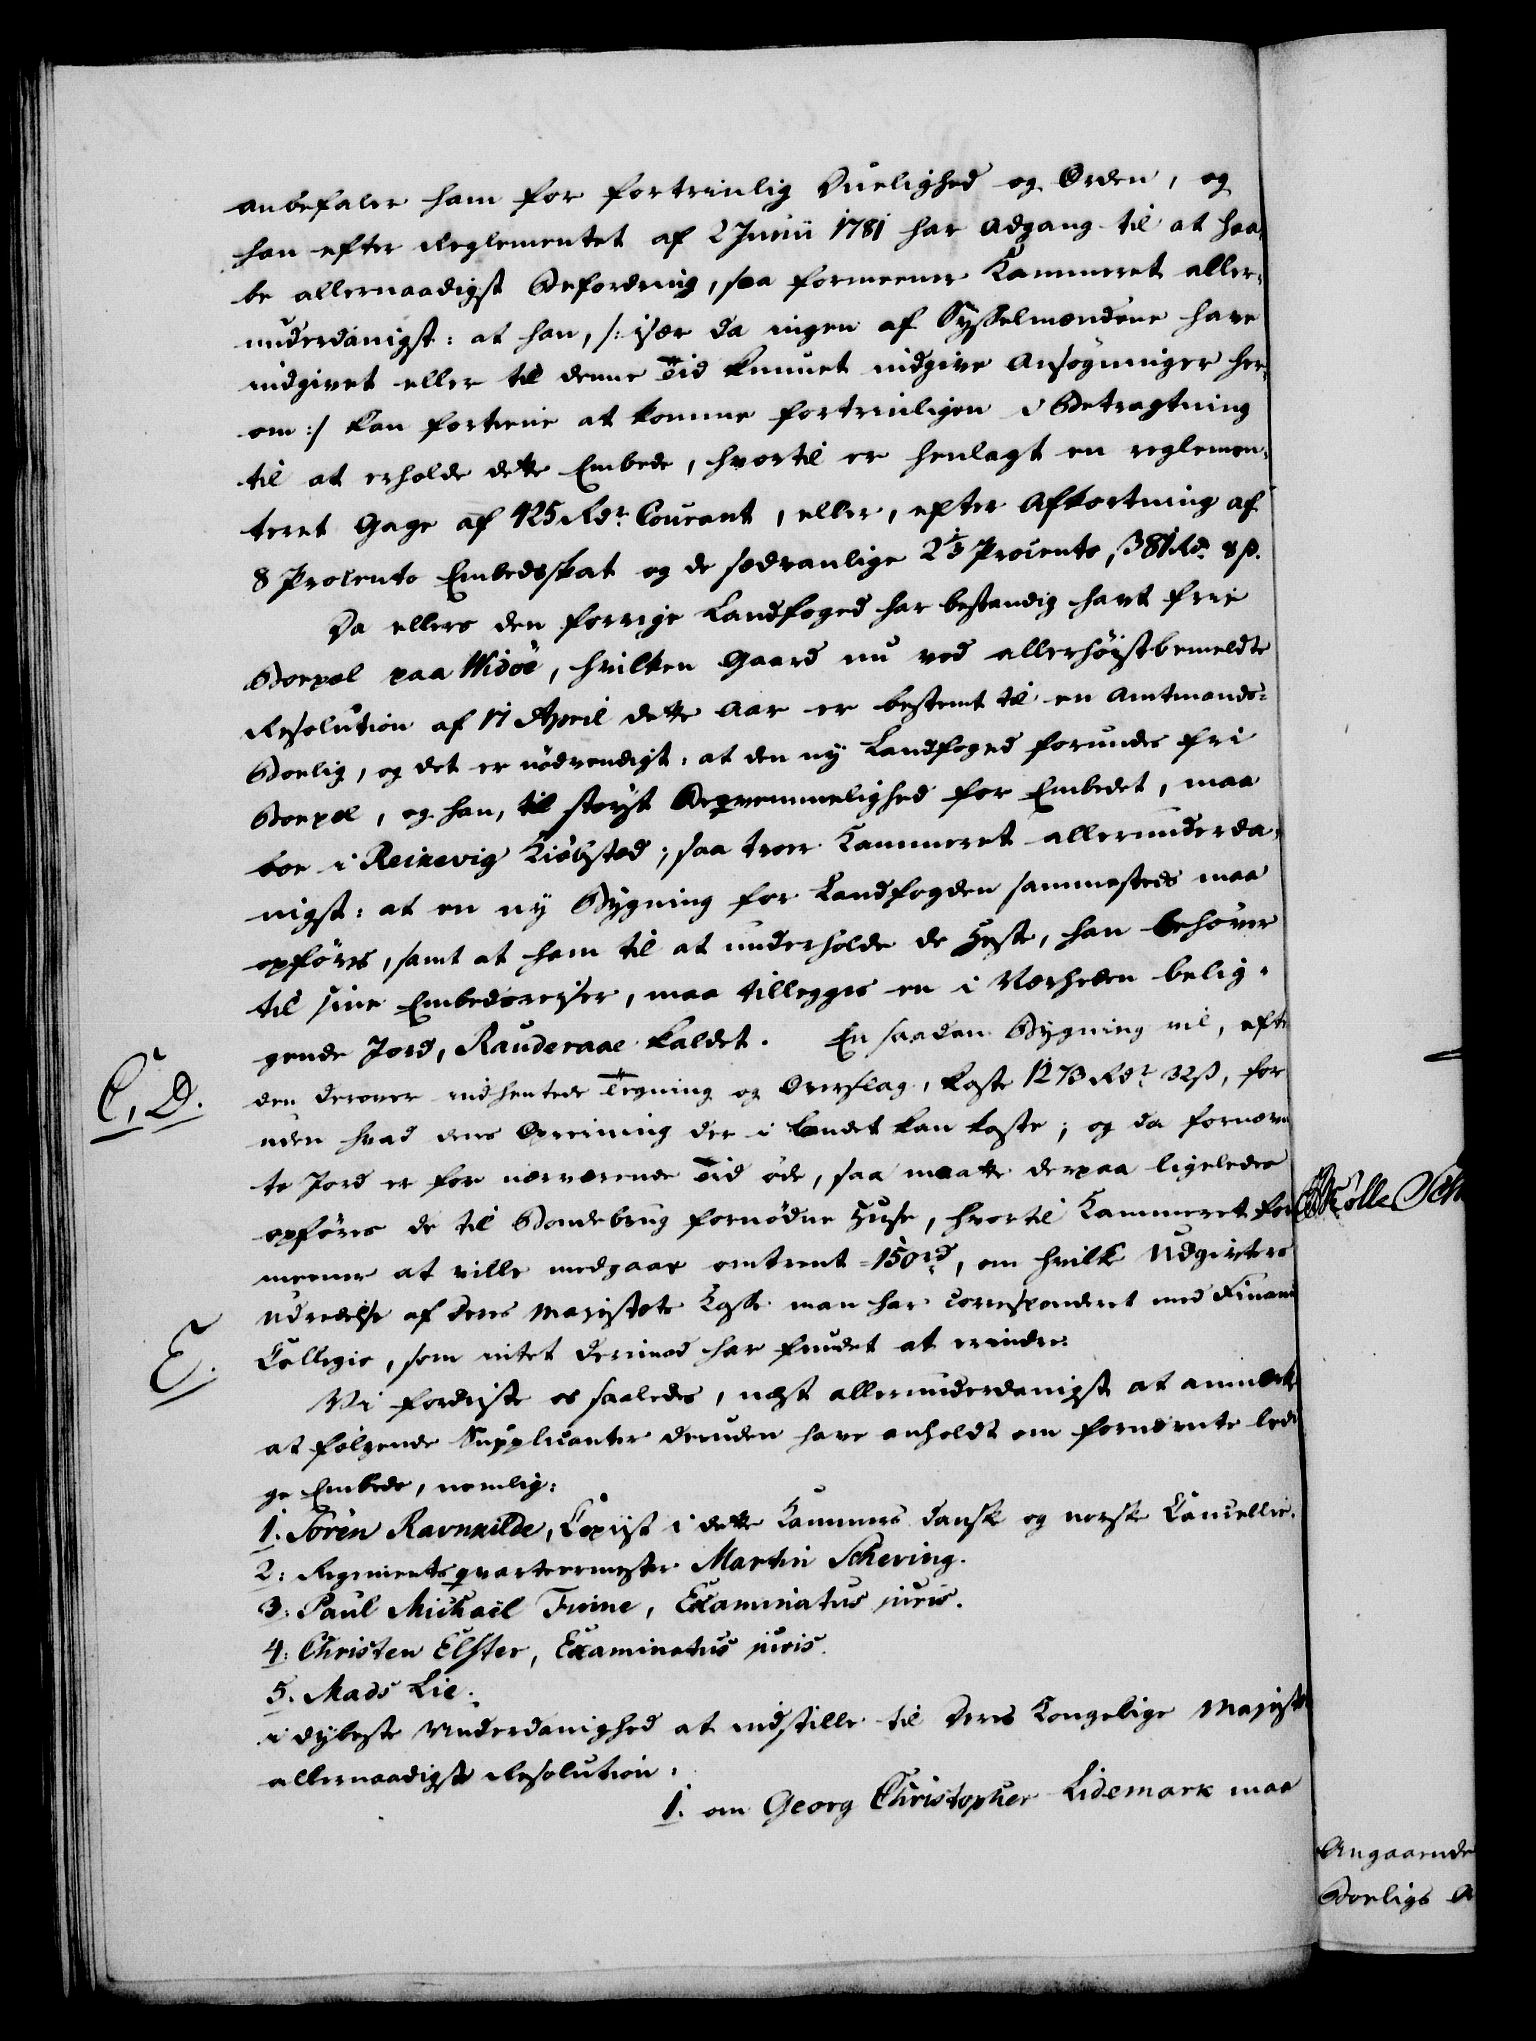 anbefaler ham for fortrinlig Duelighed og Orden, og
han efter Reglementet af 2 Junii 1781 har Adgang til at haa-
be allernaadigst Befordring, saa formeener Kammeret aller-
underdanigst: at han, /: især da ingen af Sysselmændene have
indgivet eller til denne Tid kunnet indgive Ansøgninger her-
om :/ kan fortiene at komme fortrinligen i Betragtning
til at erholde dette Embede, hvortil er henlagt en reglemen-
teret Gage af 425 Rdr Courant, eller, efter Afkortning af
8 Procento Embedsskat og de sædvanlige 2⅓ Procento, 381 Rd. 8 ß.
Da ellers den forrige Landfoged har bestandig havt frie
Boepæl paa Widöe, hvilken Gaard nu ved allerhöistbemeldte
Resolution af 17 April dette Aar er bestemt til en Amtmands-
Boelig, og det er nödvendigt: at den ny Landfoged forundes fri
Boepæl, og han, til störst Beqvemmelighed for Embedet, maa
boe i Reikevig Kiöbsted; saa troer Kammeret allerunderda-
nigst: at en ny Bygning for Landfogden sammesteds maa
opföres, samt at ham til at underholde de Heste, han behöver
til sine Embedsreiser, maa tillegges en i Nærheden belig-
gende Jord, Rauderaae kaldet. En saadan Bygning vil, efter
C, D.
den derover indhentede Tegning og Overslag, koste 1273 Rdr 32 ß, for
uden hvad dens Opreisning der i Landet kan koste; og da fornævn
te Jord er for nærværende Tid öde, saa maatte derpaa ligeledes
opföres de til Bondebrug fornödne Huse, hvortil Kammeret for
meener at ville medgaae omtrent 150 rd, om hvilke Udgivters
Udredelse af Deres Majestets Kasse man har corresponderet med Finants
E.
Collegio, som intet derimod har fundet at erindre.
Vi fordriste os saaledes, næst allerunderdanigst at anmerke
at fölgende Supplicanter desuden have anholdt om fornævnte ledi
ge Embede, nemlig:
1. Sören Ravnkilde, Copiist i dette Kammers danske og norske Cancellie.
2: Regimentsqvarteermester Martin Schering.
3: Paul Michaël Finne, Examinatus juris.
4: Christen Elster, Examinatus juris.
5. Mads Lie.
i dybeste Underdanighed at indstille til Deres Kongelige Majests
allernaadigste Resolution:
1. om Georg Christopher Lidemark maa
Angaaende
Boeligs